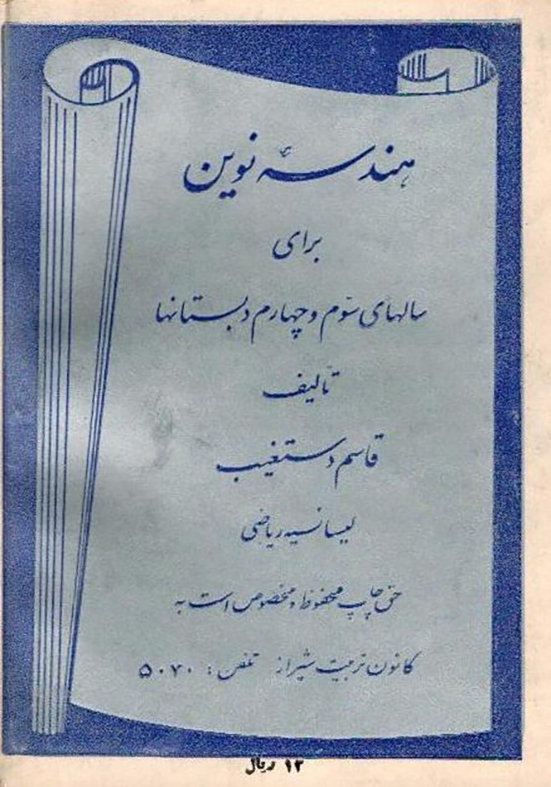 هندسهٔ نوین
برای
سالهای سوّم و چهارم دبستانها
تألیف
قاسم دستغیب
لیسانسیه ریاضی
حق چاپ محفوظ و مخصوص است به
کانون تربیت شیراز تلفن: ۵۰۷۰
۱۲ ریال